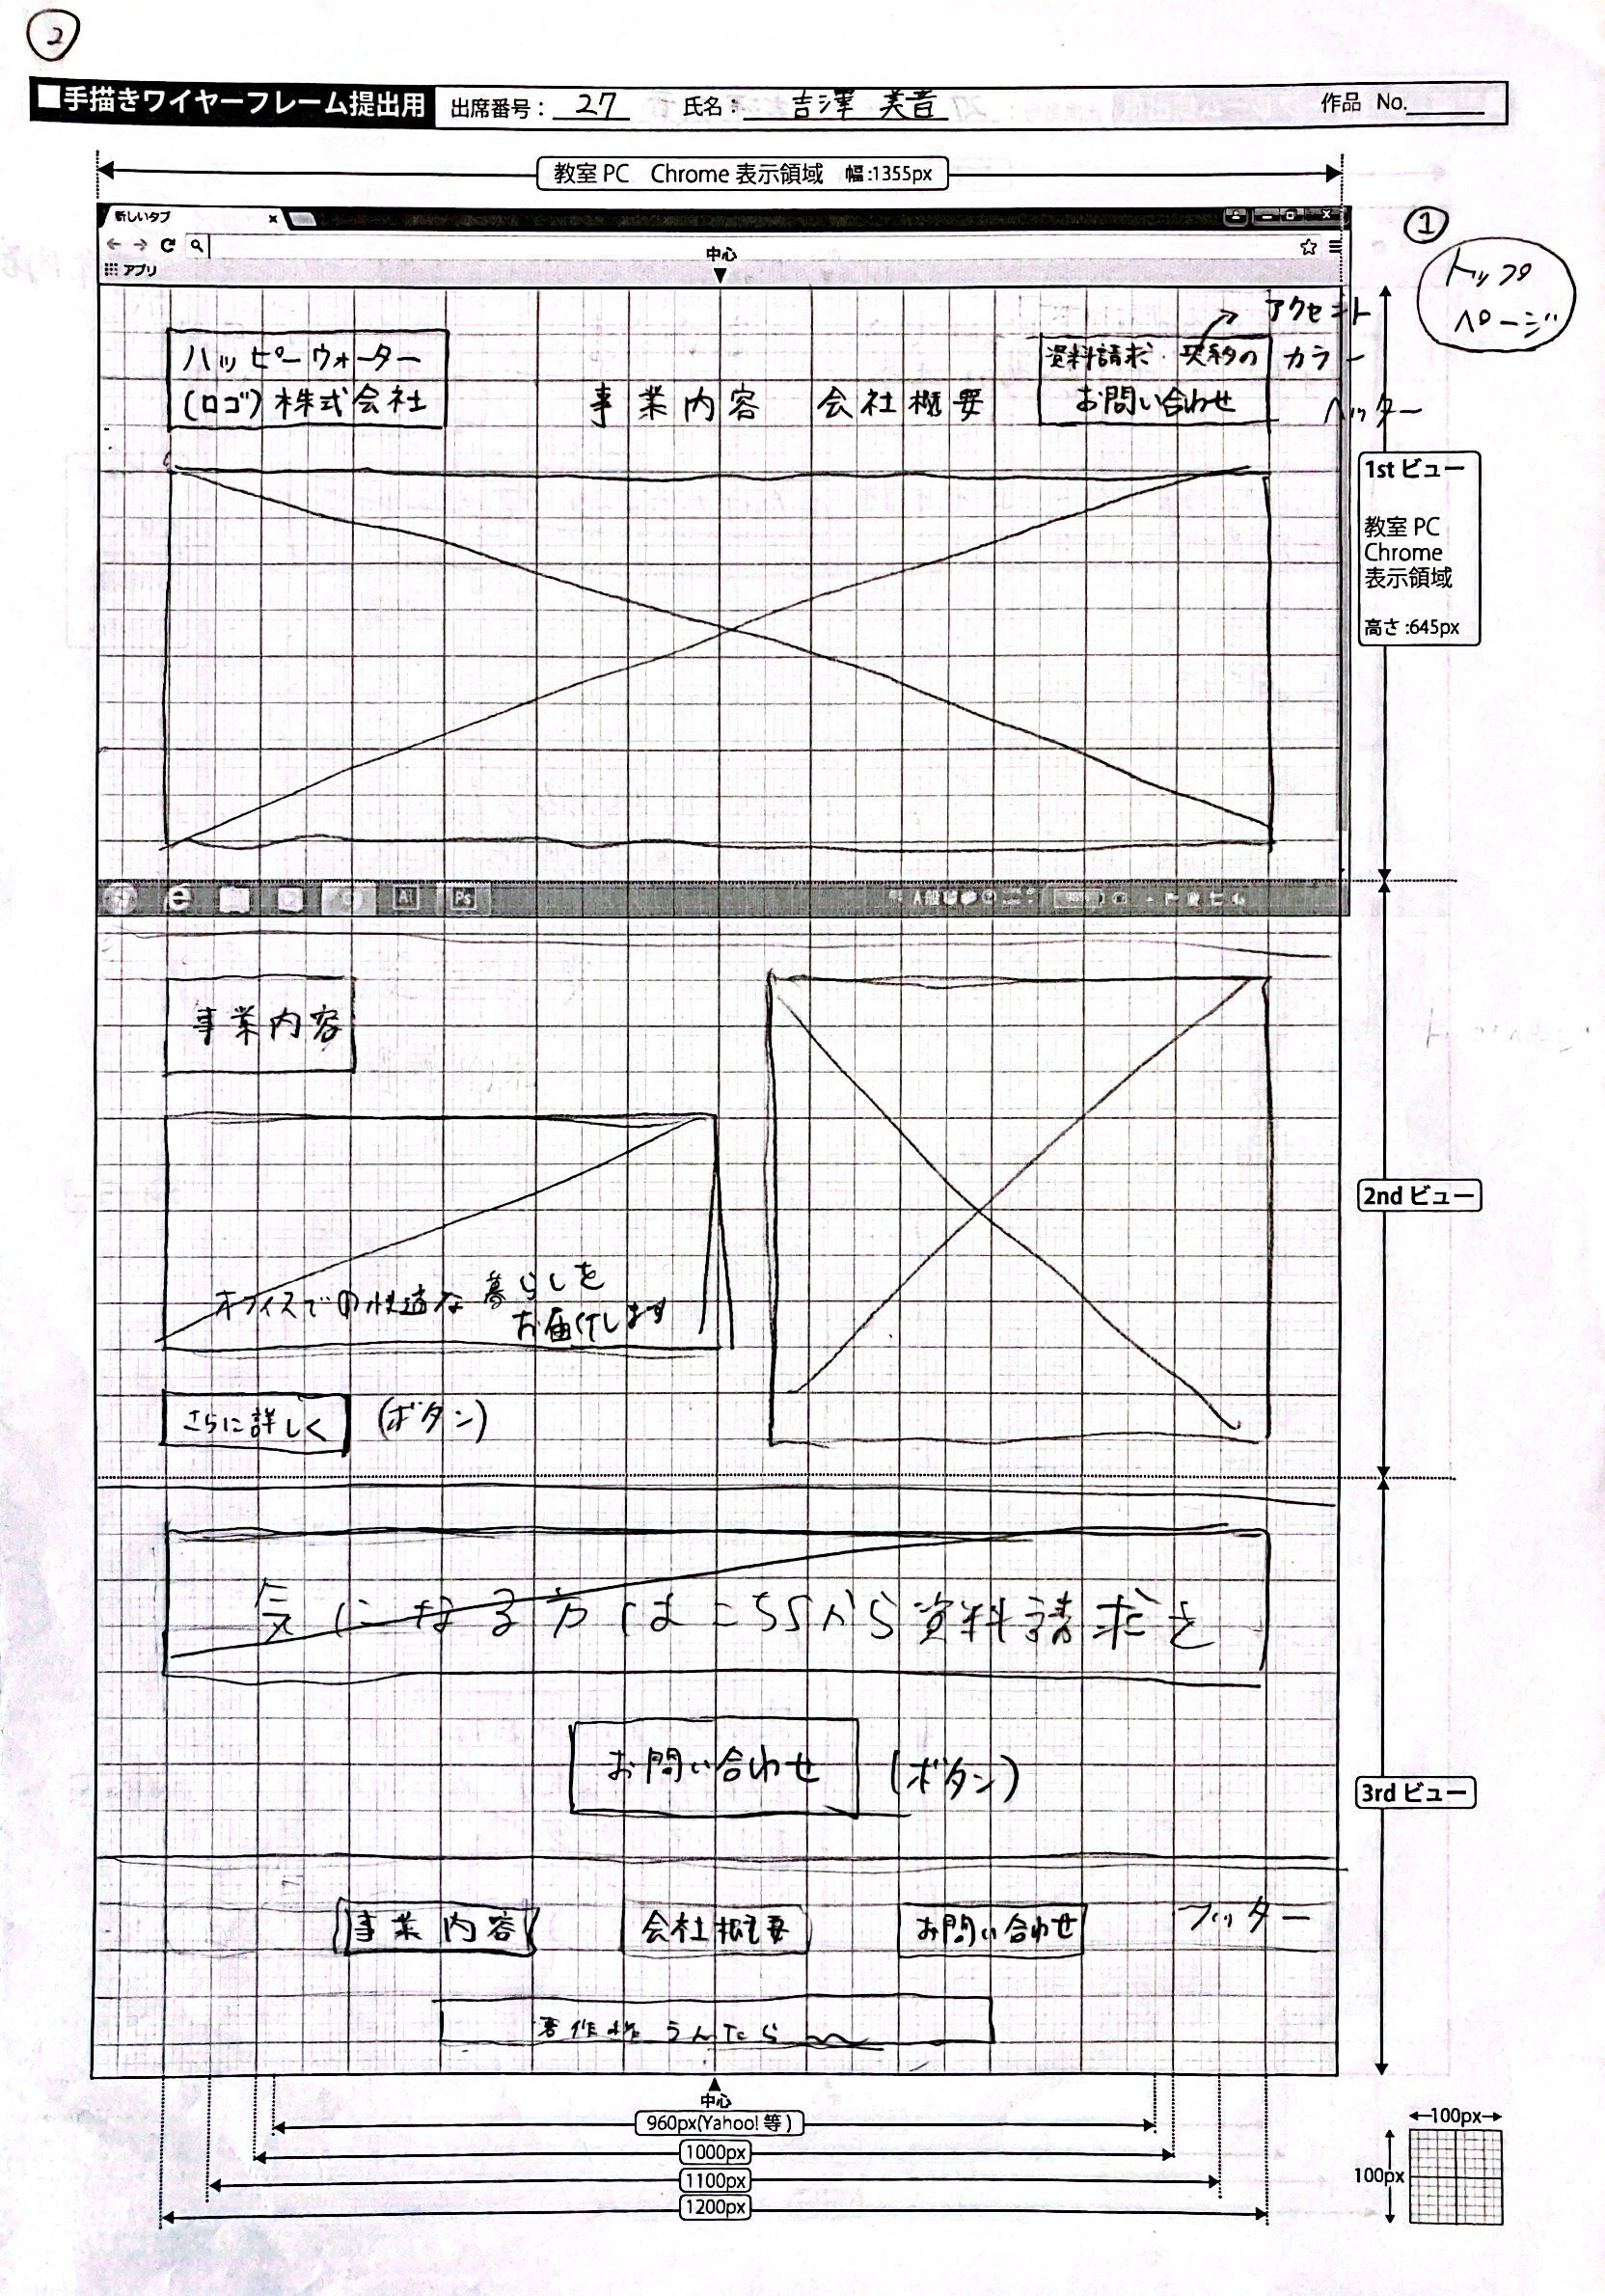 2
■手描きワイヤーフレーム提出用 出席番号: 27 氏名: 吉澤 美音 作品 No.
教室PC Chrome表示領域 幅:1355px
新しいタブ ×
アプリ
中心
①
トップ
ページ
アクセント
カラー
ヘッター
ハッピーウォーター
(ロゴ) 株式会社
事業内容 会社概要
資料請求・契約の
お問い合わせ
1stビュー
教室PC
Chrome
表示領域
高さ:645px
Ai Ps
A般
98%
事業内容
オフィスでの快適な暮らしを
お届けします
さらに詳しく (ボタン)
2ndビュー
気になる方はこちらから資料請求を
お問い合わせ (ボタン)
3rdビュー
事業内容 会社概要 お問い合わせ フッター
著作権うんたら
中心
960px(Yahoo!等)
1000px
1100px
1200px
100px
100px